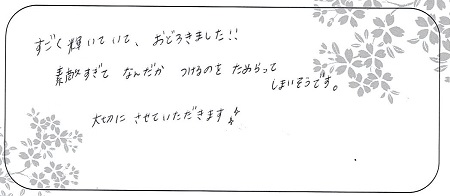 すごく輝いていて、おどろきました!!
素敵すぎて なんだか つけるのを ためらって
しまいそうです。
大切に させていただきます!!